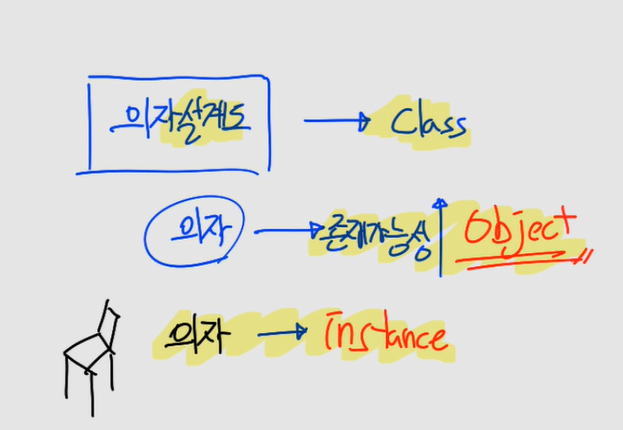 의자설계도 → Class
의자 → 존재가능성 ↑ Object
의자 → instance